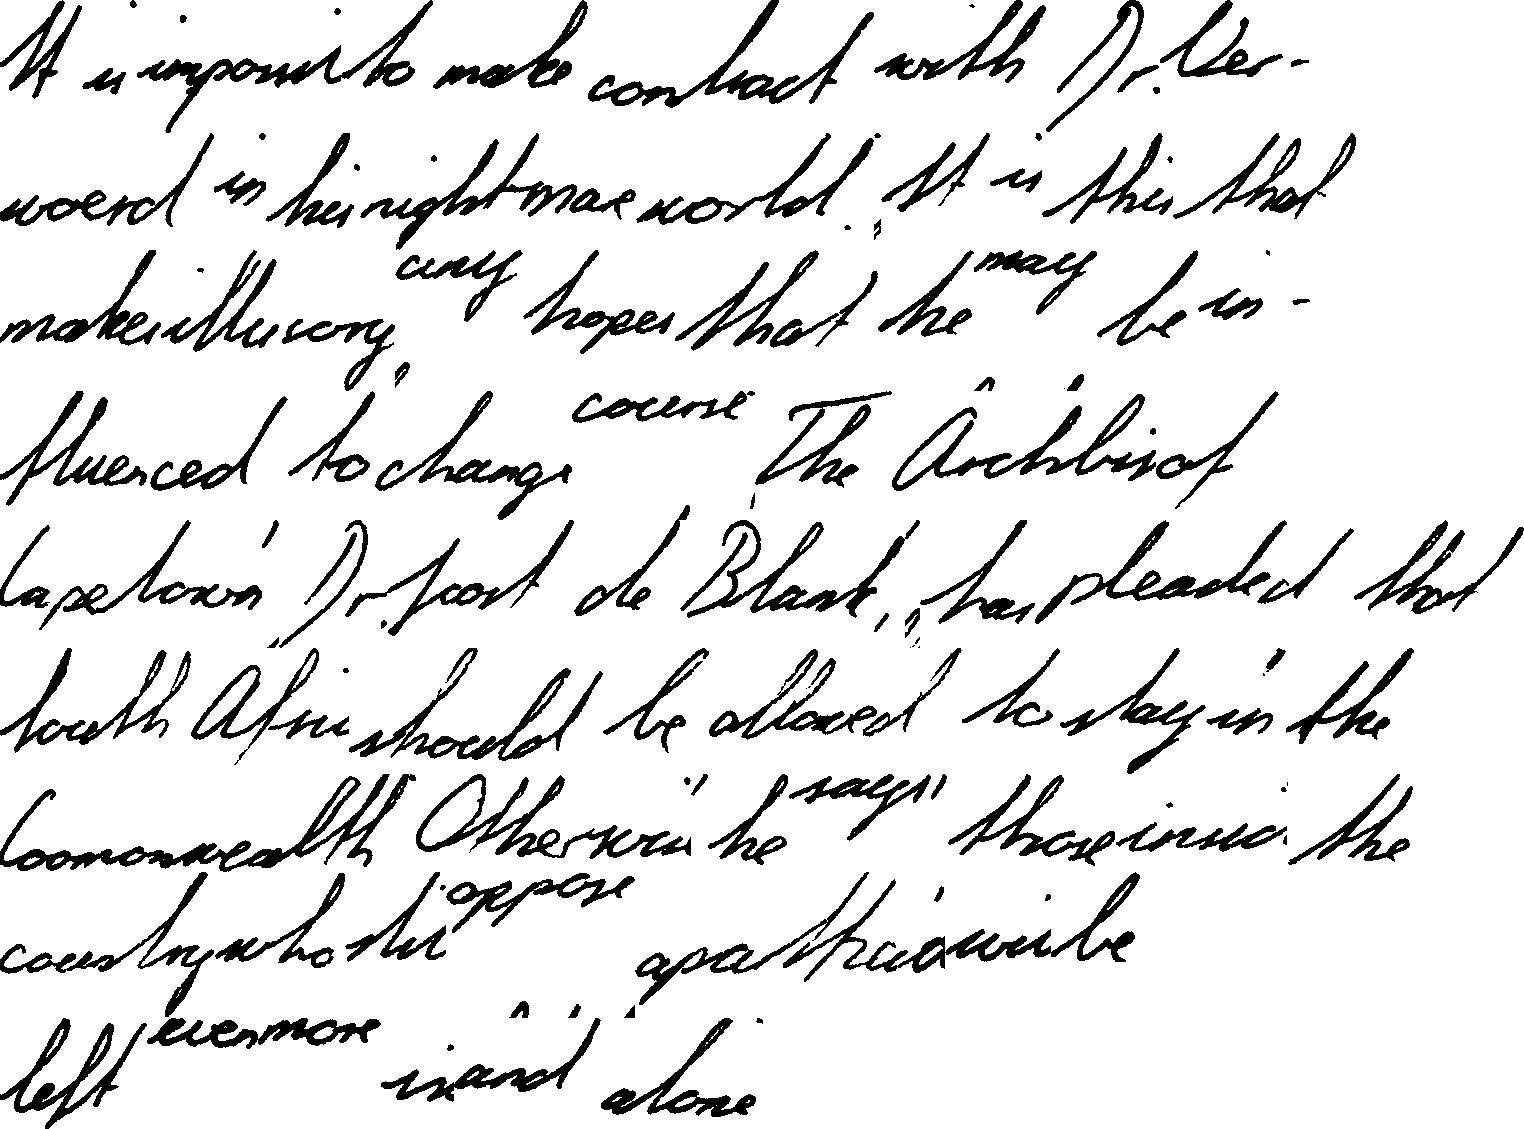 It is impossi to make contact with Dr. Ver-
woerd in his nightmare world. It is this that
makes illusory any hopes that he may be in-
fluenced to change course. The Archbis of
Capetown, Dr. Joost de Blank, has pleaded that
South Afric should be allowed to stay in the
Commonwealth. Otherwise he says those inside the
country who still oppose will be
left evermore and alone